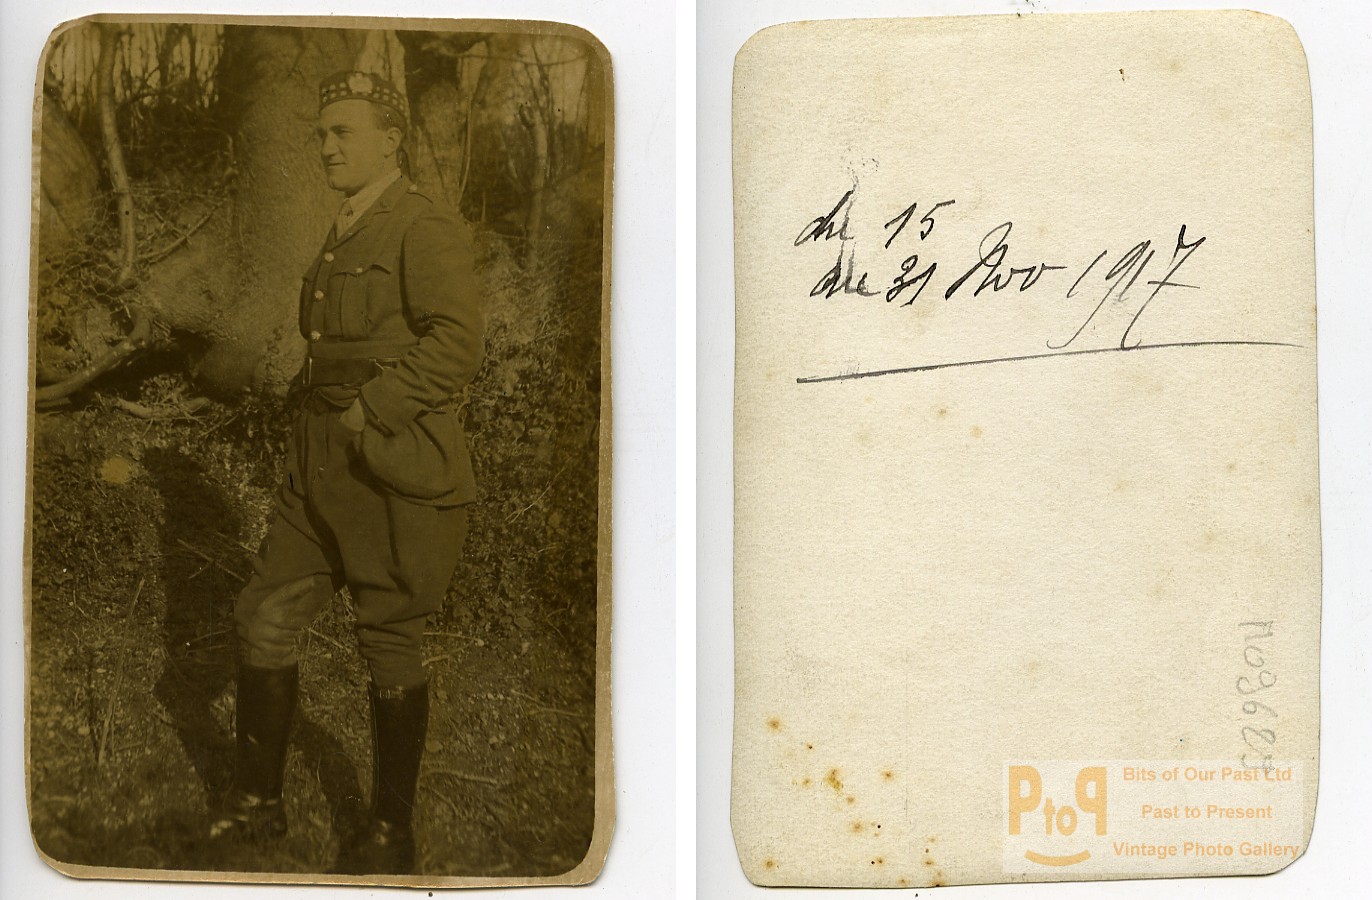 du 15
au 31 Nov 1917
PtoP
Bits of Our Past Ltd
Past to Present
Vintage Photo Gallery